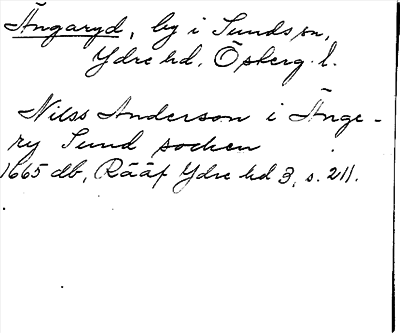 Ängaryd, by i Sunds sn,
Ydre hd. Österg. l.
Nilss Anderson i Änge-
ry Sund socken
1665 db, Rääf Ydre hd 3, s. 211.